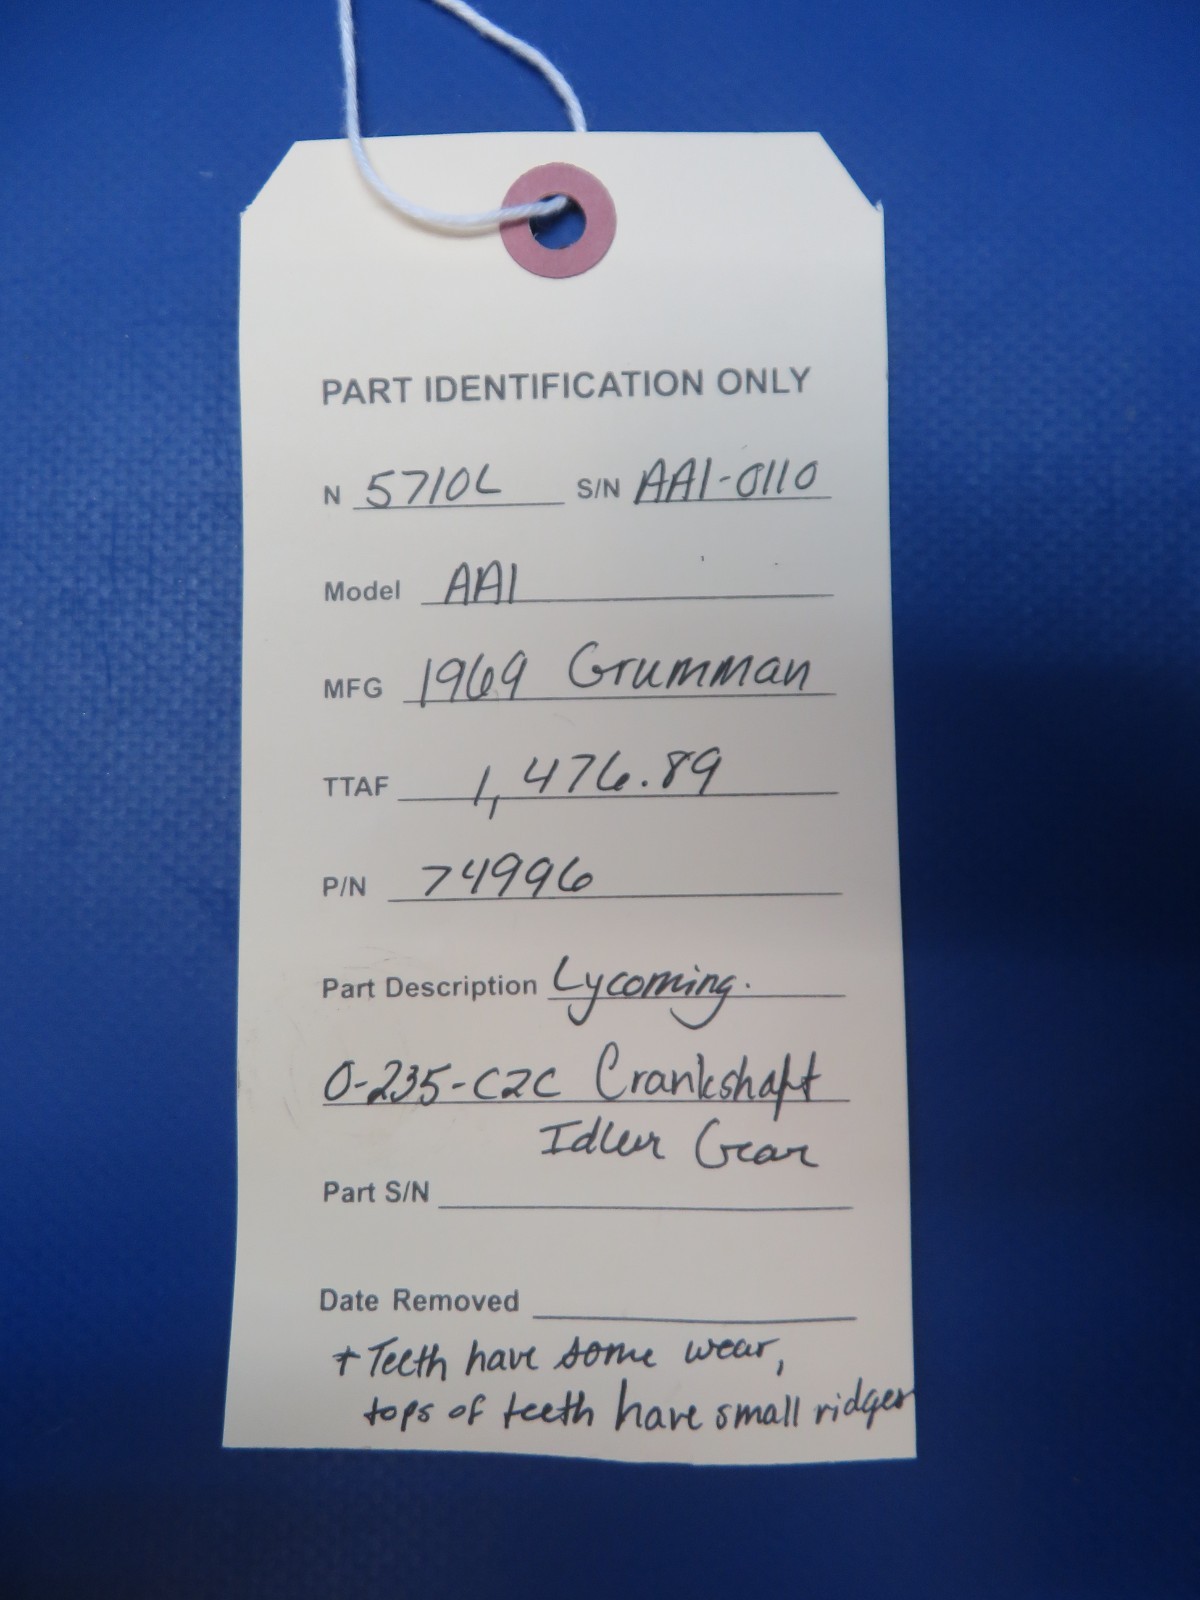 PART IDENTIFICATION ONLY
N 5710L S/N AA1-0110
Model AA1
MFG 1969 Grumman
TTAF 1,476.89
P/N 74996
Part Description Lycoming.
O-235-C2C Crankshaft
Idler Gear
Part S/N
Date Removed
+ Teeth have some wear,
tops of teeth have small ridges